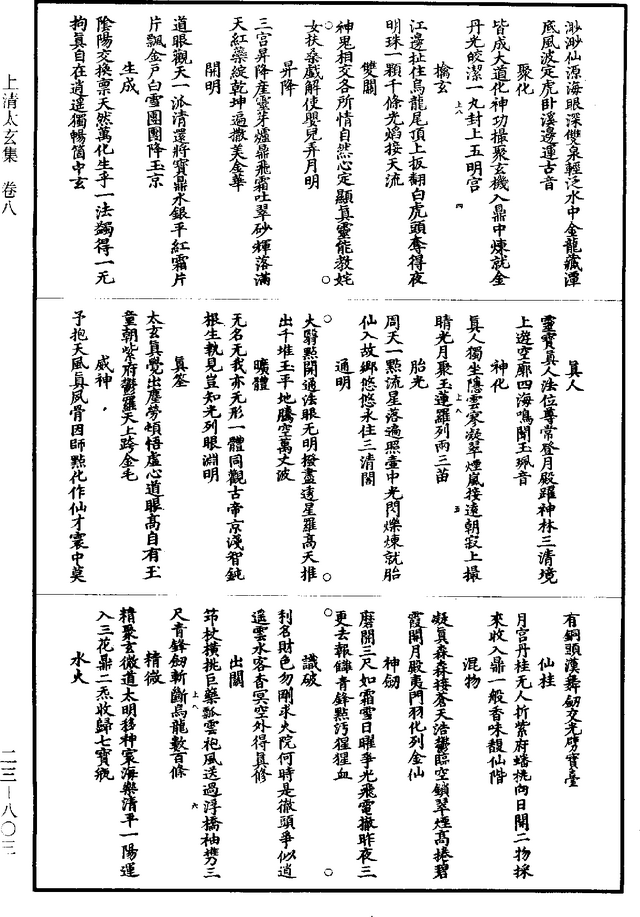 渺渺仙源海眼深雙泉輕泛水中金龍藏潭
底風波定虎卧溪邊運古音
聚化
皆成大道化神功撮聚玄機入鼎中煉就金
丹光皎潔一九封上五明宫
擒玄
江邊扯住烏龍尾頂上扳翻白虎頭奪得夜
明珠一顆千條光焰接天流
雙關
神鬼相交各所情自然心定顯真靈能教姹
女扶桑戲解使嬰兒弄月明
昇降
三宫昇降産靈芽爐鼎飛霜吐翠砂輝落滿
天紅藥綻乾坤遍撒美金華
開明
道眼觀天一派清還將寶鼎水銀平紅霜片
片飄金户白雪團團降玉京
生成
陰陽交換禀天然萬化生乎一法蠲得一无
拘真自在逍遥獨暢箇中玄
真人
靈寶真人法位尊常登月殿躍神林三清境
上遊空廓四海鳴聞玉珮音
神化
真人獨坐隱雲寥凝翠煙嵐接遠朝寂上撮
晴光月聚玉蓮羅列兩三苗
胎光
周天一點流星落遍照壺中光閃爍煉就胎
仙入故鄉悠悠永住三清閣
通明
大醫點開通法眼无明撥盡透星羅高天推
出千堆玉平地騰空萬丈波
曠體
无名无我亦无形一體同觀古帝京淺智鈍
根生執見豈知光列眼淵明
真筌
太玄真覺出塵勞頓悟虛心道眼高自有玉
童朝紫府鬱羅天上跨金毛
威神
予抱天風真夙骨因師點化作仙才寰中莫
有銅頭漢舞劒交光劈寶臺
仙桂
月宫丹桂无人折紫府蟠桃向日開二物採
來收入鼎一般香味馥仙階
混物
凝真森森接蒼天浩鬱臨空鎖翠煙髙捲碧
霞開月殿夷門羽化列金仙
神劒
磨開三尺如霜雪日曜爭光飛電撤昨夜三
更去報讎青鋒點汚猩猩血
識破
利名財色勿剛求火院何時是徹頭爭似逍
遥雲水客杳冥空外得真修
出關
筇杖橫挑巨藥瓢雲袍風送過浮橋袖携三
尺青鋒劒斬斷烏龍數百條
精微
精聚玄微道太明移神寰海樂清平一陽運
入三花鼎二炁收歸七寶瓶
水火
上清太玄集 卷八
二三—八〇三